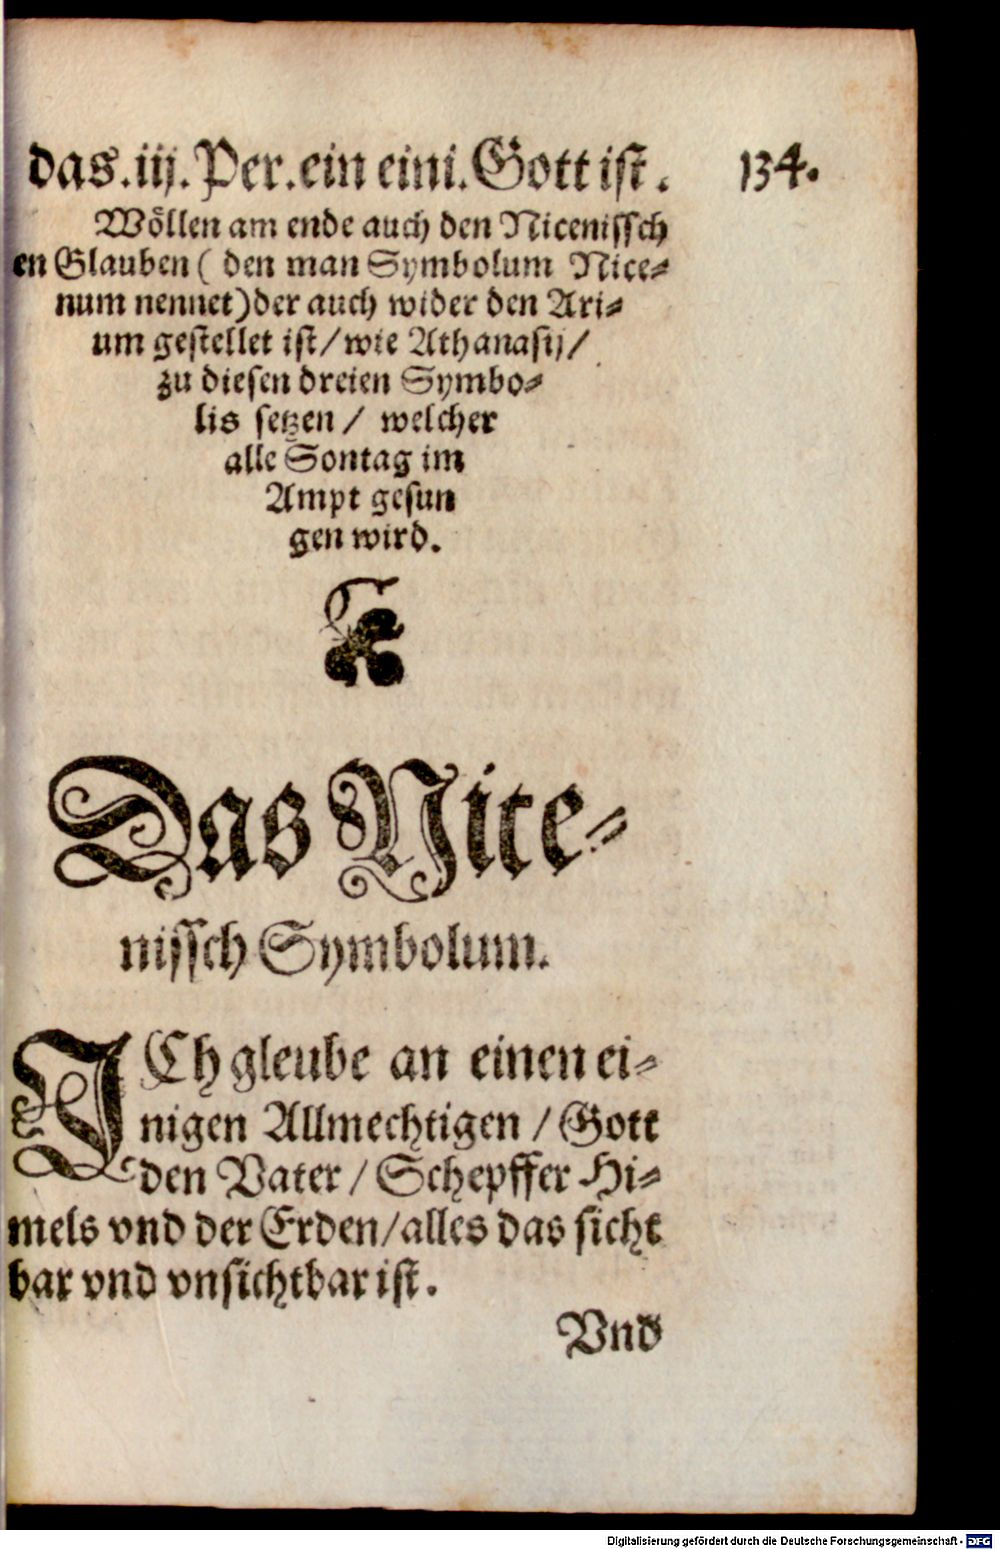 das.iij.Per.ein eini.Gott ist. 134.
Wöllen am ende auch den Nicenissch
en Glauben ( den man Symbolum Nice⸗
num nennet) der auch wider den Ari⸗
um gestellet ist/ wie Athanasij/
zu diesen dreien Symbo⸗
lis setzen / welcher
alle Sontag im
Ampt gesun
gen wird.
Das Nice⸗
nissch Symbolum.
ICh gleube an einen ei⸗
nigen Allmechtigen / Gott
den Vater / Schepffer Hi⸗
mels vnd der Erden/alles das sicht
bar vnd vnsichtbar ist.
Vnd
Digitalisierung gefördert durch die Deutsche Forschungsgemeinschaft - DFG